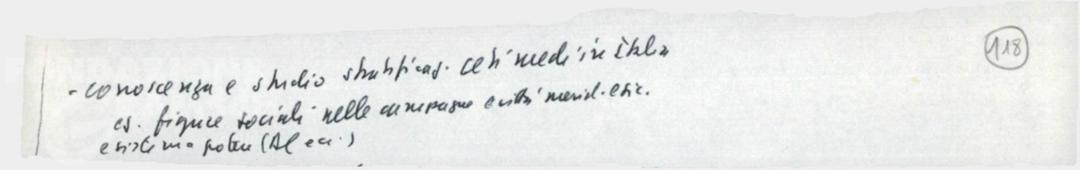 118
- conoscenza e studio stratificaz. ceti medi in Italia
es. figure sociali nelle campagne e città merid. ecc.
e sistema potere (Al ecc.)